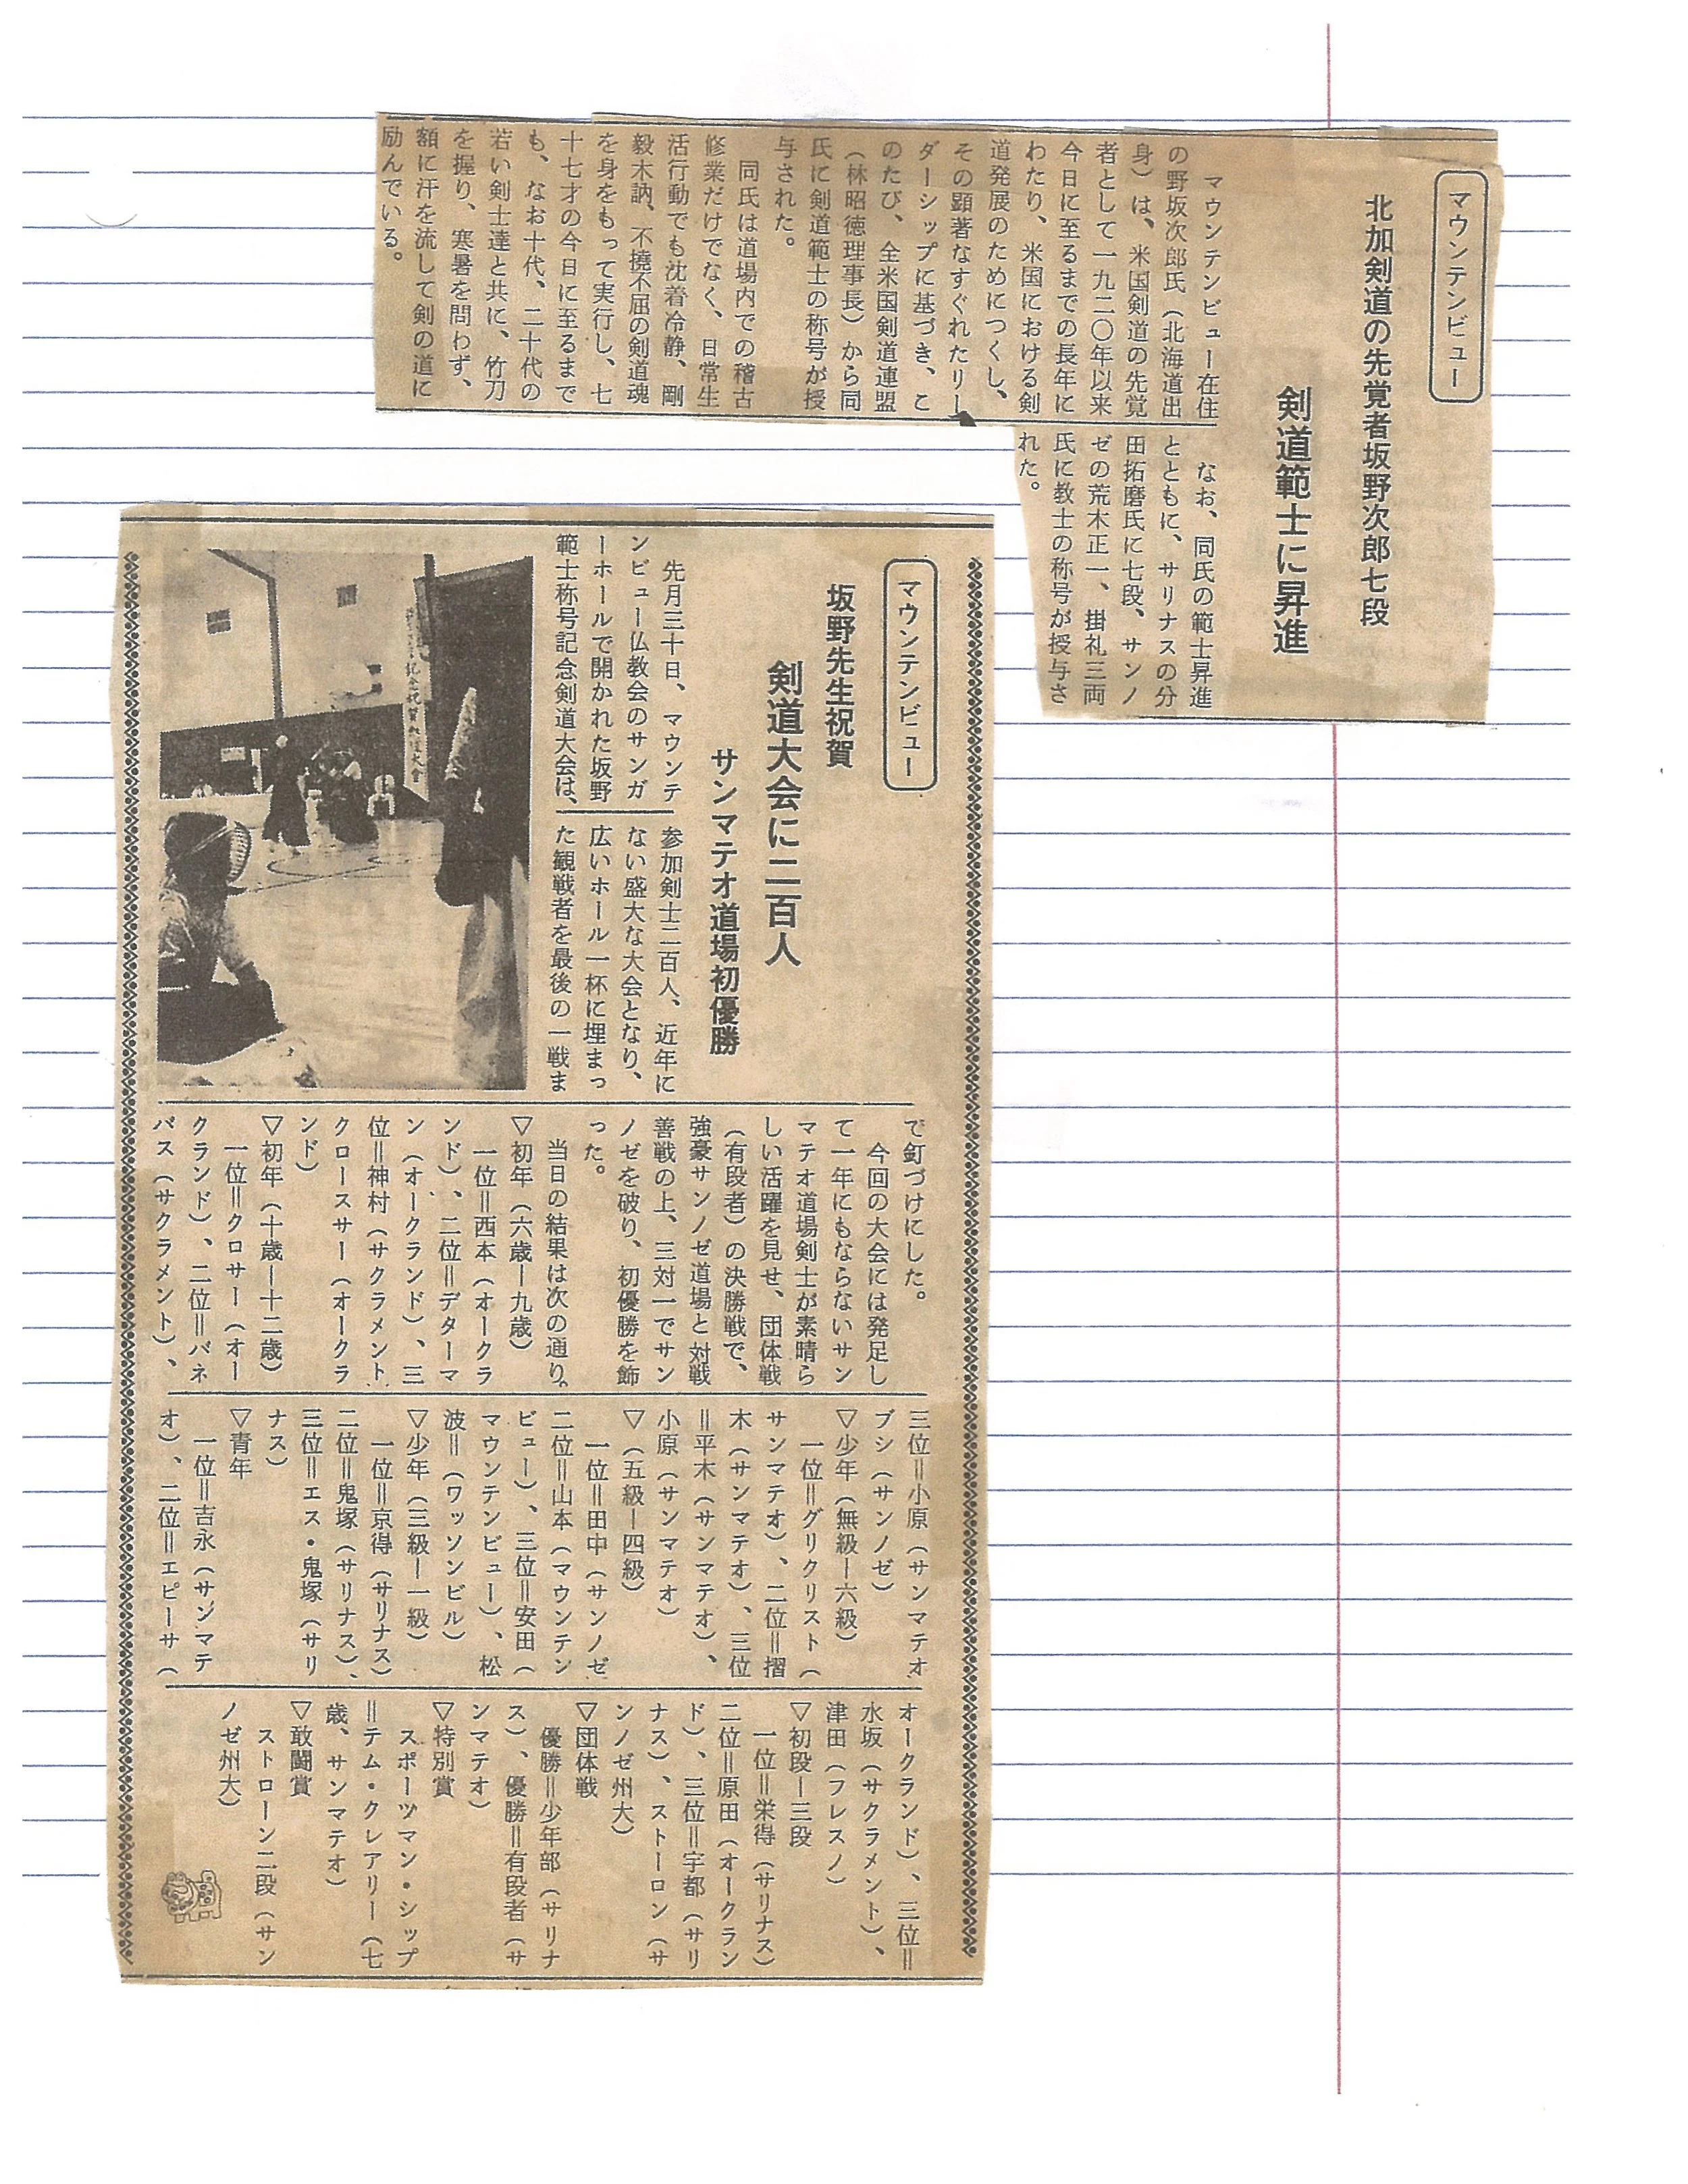 マウンテンビュー
北加剣道の先覚者坂野次郎七段
剣道範士に昇進
マウンテンビュー在住
の野坂次郎氏（北海道出
身）は、米国剣道の先覚
者として一九二〇年以来
今日に至るまでの長年に
わたり、米国における剣
道発展のためにつくし、
その顕著なすぐれたリー
ダーシップに基づき、こ
のたび、全米国剣道連盟
（林昭徳理事長）から同
氏に剣道範士の称号が授
与された。
同氏は道場内での稽古
修業だけでなく、日常生
活行動でも沈着冷静、剛
毅木訥、不撓不屈の剣道魂
を身をもって実行し、七
十七才の今日に至るまで
も、なお十代、二十代の
若い剣士達と共に、竹刀
を握り、寒暑を問わず、
額に汗を流して剣の道に
励んでいる。
なお、同氏の範士昇進
とともに、サリナスの分
田拓磨氏に七段、サンノ
ゼの荒木正一、掛礼三両
氏に教士の称号が授与さ
れた。
マウンテンビュー
坂野先生祝賀
剣道大会に二百人
サンマテオ道場初優勝
先月三十日、マウンテ
ンビュー仏教会のサンガ
ーホールで開かれた坂野
範士称号記念剣道大会は、
参加剣士二百人、近年に
ない盛大な大会となり、
広いホール一杯に埋まっ
た観戦者を最後の一戦ま
で釘づけにした。
今回の大会には発足し
て一年にもならないサン
マテオ道場剣士が素晴ら
しい活躍を見せ、団体戦
（有段者）の決勝戦で、
強豪サンノゼ道場と対戦
善戦の上、三対一でサン
ノゼを破り、初優勝を飾
った。
当日の結果は次の通り。
▽初年（六歳ー九歳）
一位＝西本（オークラ
ンド）、二位＝デターマ
ン（オークランド）、三
位＝神村（サクラメント、
クロースサー（オークラ
ンド）
▽初年（十歳ー十二歳）
一位＝クロサー（オー
クランド）、二位＝バネ
バス（サクラメント）、
三位＝小原（サンマテオ
ブシ（サンノゼ）
▽少年（無級ー六級）
一位＝グリクリスト（
サンマテオ）、二位＝摺
木（サンマテオ）、三位
＝平木（サンマテオ）、
小原（サンマテオ）
▽（五級ー四級）
一位＝田中（サンノゼ
二位＝山本（マウンテン
ビュー）、三位＝安田（
マウンテンビュー）、松
波＝（ワッソンビル）
▽少年（三級ー一級）
一位＝京得（サリナス）
二位＝鬼塚（サリナス）、
三位＝エス・鬼塚（サリ
ナス）
▽青年
一位＝吉永（サンマテ
オ）、二位＝エピーサ（
オークランド）、三位＝
水坂（サクラメント）、
津田（フレスノ）
▽初段ー三段
一位＝栄得（サリナス）
二位＝原田（オークラン
ド）、三位＝宇都（サリ
ナス）、ストーロン（サ
ンノゼ州大）
▽団体戦
優勝＝少年部（サリナ
ス）、優勝＝有段者（サ
ンマテオ）
▽特別賞
スポーツマン・シップ
＝テム・クレアリー（七
歳、サンマテオ）
▽敢闘賞
ストローン二段（サン
ノゼ州大）